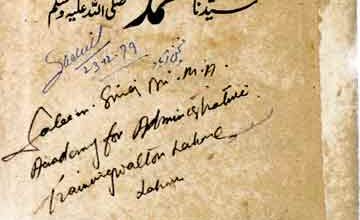 سیدنا محمد صلی اللہ علیہ وسلم
23-12-79
Saleem. Siraj M.A.
Academy for Administrative
Training Walton Lahore
Lahore